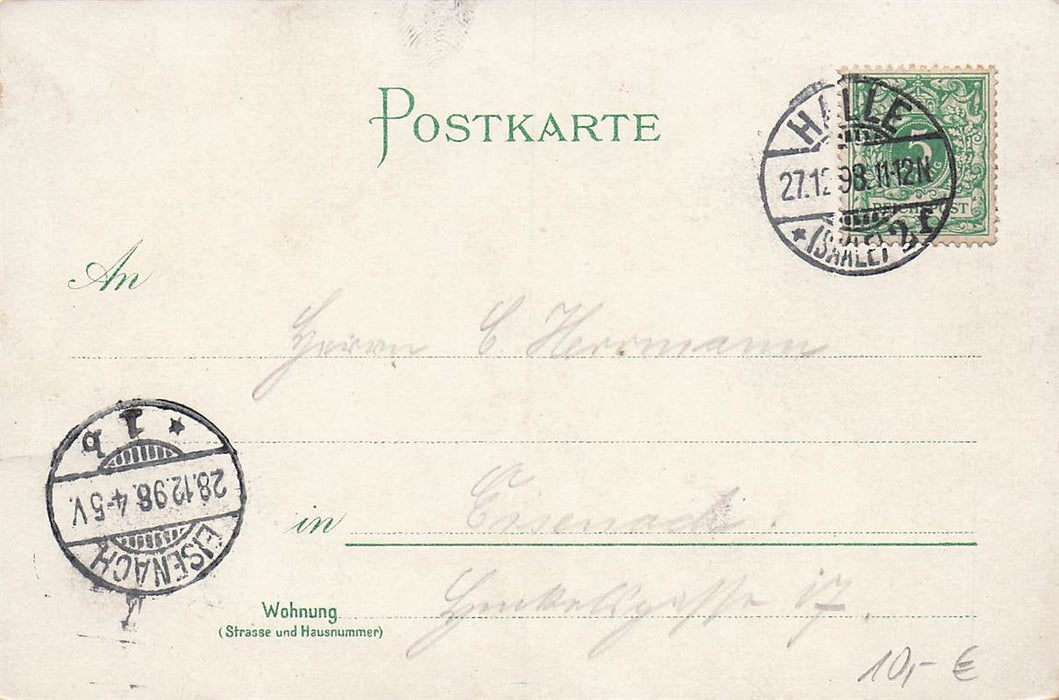 POSTKARTE
HALLE
27.12.98.11-12N
* (SAALE) 2 f
5
REICHSPOST
An
Herrn C Herrmann
1 b *
28.12.98. 4-5 V.
EISENACH
in Eisenach.
Wohnung
(Strasse und Hausnummer)
17.
10,- €